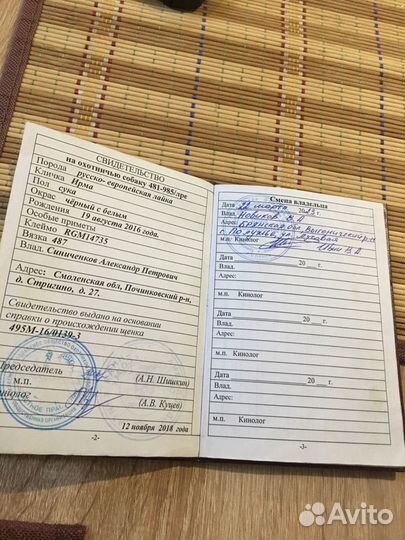 СВИДЕТЕЛЬСТВО
на охотничью собаку 481-985/лре
Порода русско- европейская лайка
Кличка Ирма
Пол сука
Окрас чёрный с белым
Рождения 19 августа 2016 года.
Особые приметы
Клеймо RGM14735
Вязка 487
Влад. Синиченков Александр Петрович
Адрес: Смоленская обл, Починковский р-н,
д. Стригино, д. 27.
Свидетельство выдано на основании
справки о происхождении щенка
495М-16/0139-3
Председатель
м.п. (А.Н. Шишкин)
(А.В. Куцев)
12 ноября 2018 года
-2-
Смена владельца
Дата 22 марта 2023 г.
Влад. Новиков В.А
Адрес: Брянская обл. Выгоничский р-н
м.п. Кинолог
Дата 20 г.
Влад.
Адрес:
м.п. Кинолог
Дата 20 г.
Влад.
Адрес:
м.п. Кинолог
Дата 20 г.
Влад.
Адрес:
м.п. Кинолог
-3-
Avito